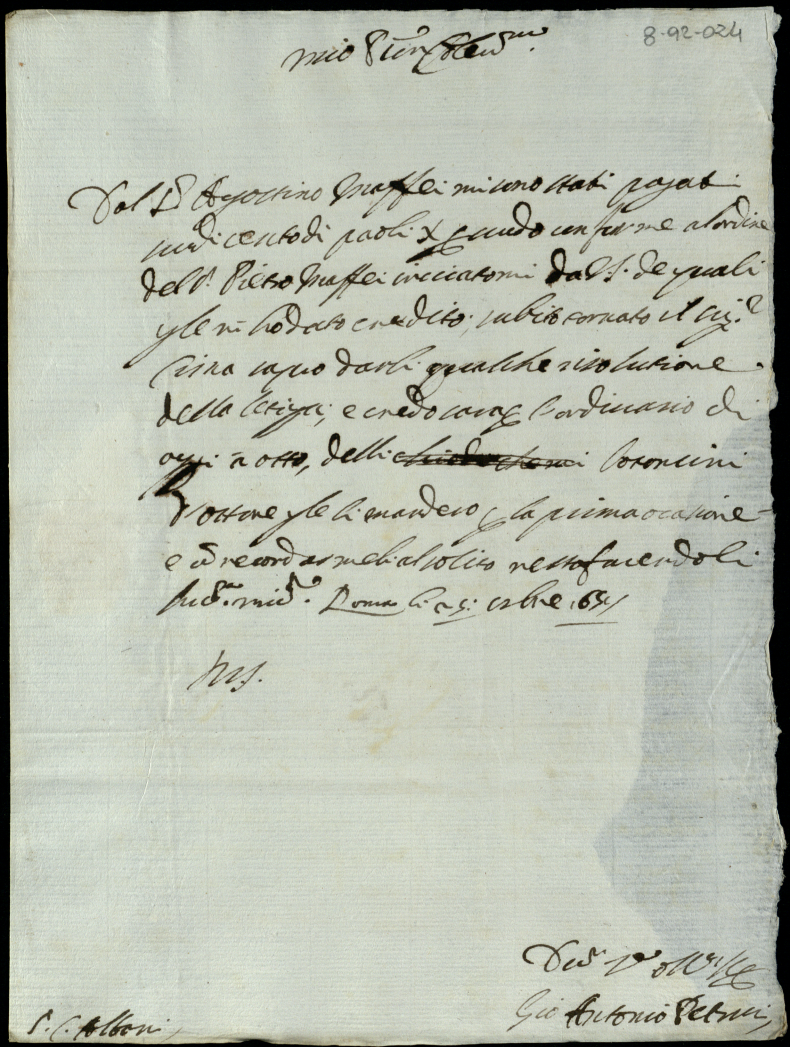 8-92-024
mio Sig.r
Dal S.r Agostino Maffei mi sono stati pagati
scudi cento di paoli X per scudo conforme al ordine
del S. Pietro Maffei inviatomi da V.S. de quali
gle n' ho dato credito, subito tornato il Sig.r
Cima sapro darli qualche risolutione
della litiga, e credo sara per l'ordinario di
oggi a otto, delli
d'ottone gle li mandero per la prima occasione
e con recordarmeli al solito resto facendoli
Roma li 25: 1657
V.S.
Di V.S. molto
Gio Antonio Petrucci
S. C. Albani